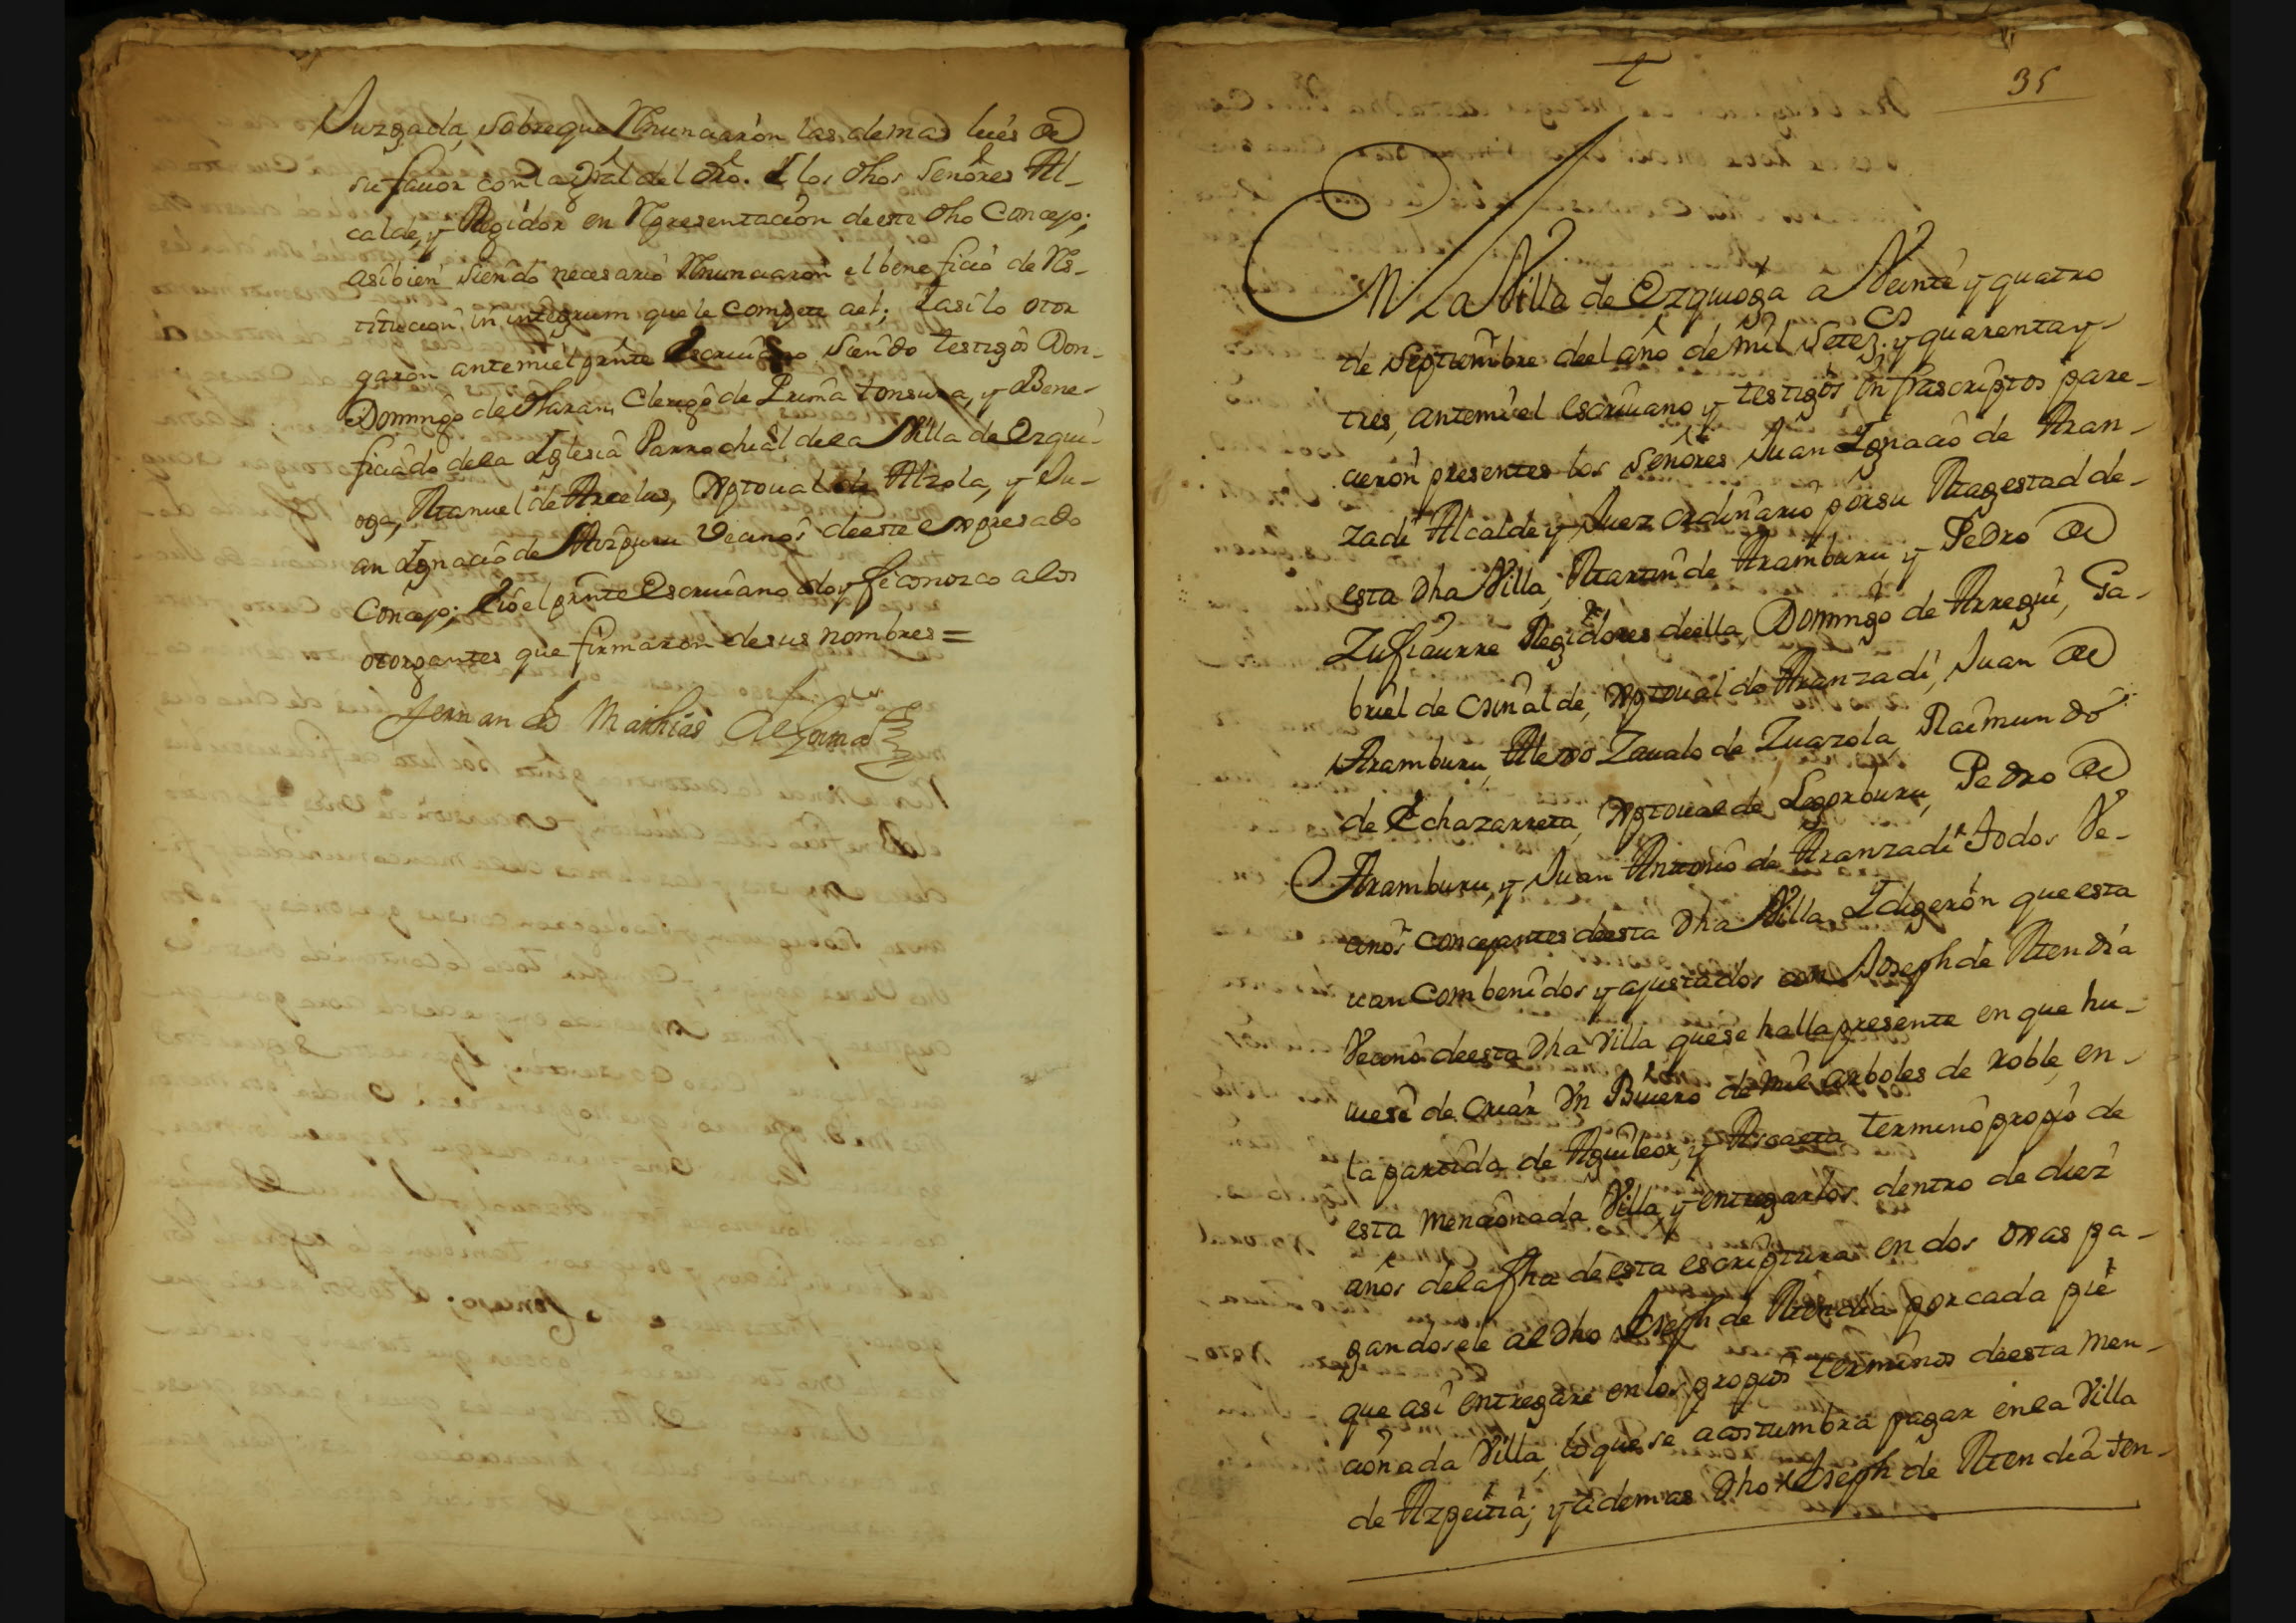 Juzgada, sobre que Renunciarón las demas leíes de
su fauor con la gral del dro. Y los dhos Senóres Al-
calde, y Regidor en Representación de este dho Concejo;
asibien siendo necesario Renunciaron el beneficio de Res-
titucion in integrum que le compete ael; Y asi lo otor
garon antemi el prnte Escriuano siendo testigos Don
Domingo de Clerigo de Prima tonsura, y Bene-
ficiado de la Iglesia Parrochial de la Villa de Ezqui-
oga, Manuel de Arcelus, Xptoual de Alzola, y Ju-
an Ignacio de Aizpuru Vecinos de este expresado
Concejo; Y io el prnte Escriuano doy fe conozco a los
otorgantes que firmaron de sus nombres =
Fernando Mathias de
35
En La Villa de Ezquioga a Veinte y quatro
de Septiembre deel año de mil Setezs. y quarenta y
tres, antemi el escriuano y testigos infrascriptos pare-
cieron presentes los Senóres Juan Ignacio de Aran-
zadi Alcalde y Juez ordinario por su Magestad de
esta dha Villa, Martin de Aramburu, y Pedro de
Zufiaurre Regidores deella, Domingo de Arregui, Ga-
briel de Xptoual de Aranzadi, Juan de
Aramburu, Alexo Zaualo de Zuazola, Raimundo
de Echazarreta, Xptoual de Legorburu, Pedro de
Aramburu, y Juan Antonio de Aranzadi Todos Ve-
cinos concejantes deesta dha Villa, Y digerón que esta
uan Combenidos y ajustados con Joseph de Mendia
Vecino deesta dha Villa que se halla presente en que hu-
uiese de criar Vn Biuero de mil arboles de roble, en
la partida de Aguileor, y Ascaeta termino propio de
esta mencionada Villa, y entregarlos dentro de diez
años de la fha de esta escriptura en dos oxas pa-
gandosele al dho Joseph de Mendia por cada pie
que asi entregare en los propios terminos deesta men-
cionada Villa, lo que se acostumbra pagar en la Villa
de Azpeitia; y ademas dho Joseph de Mendia ten-